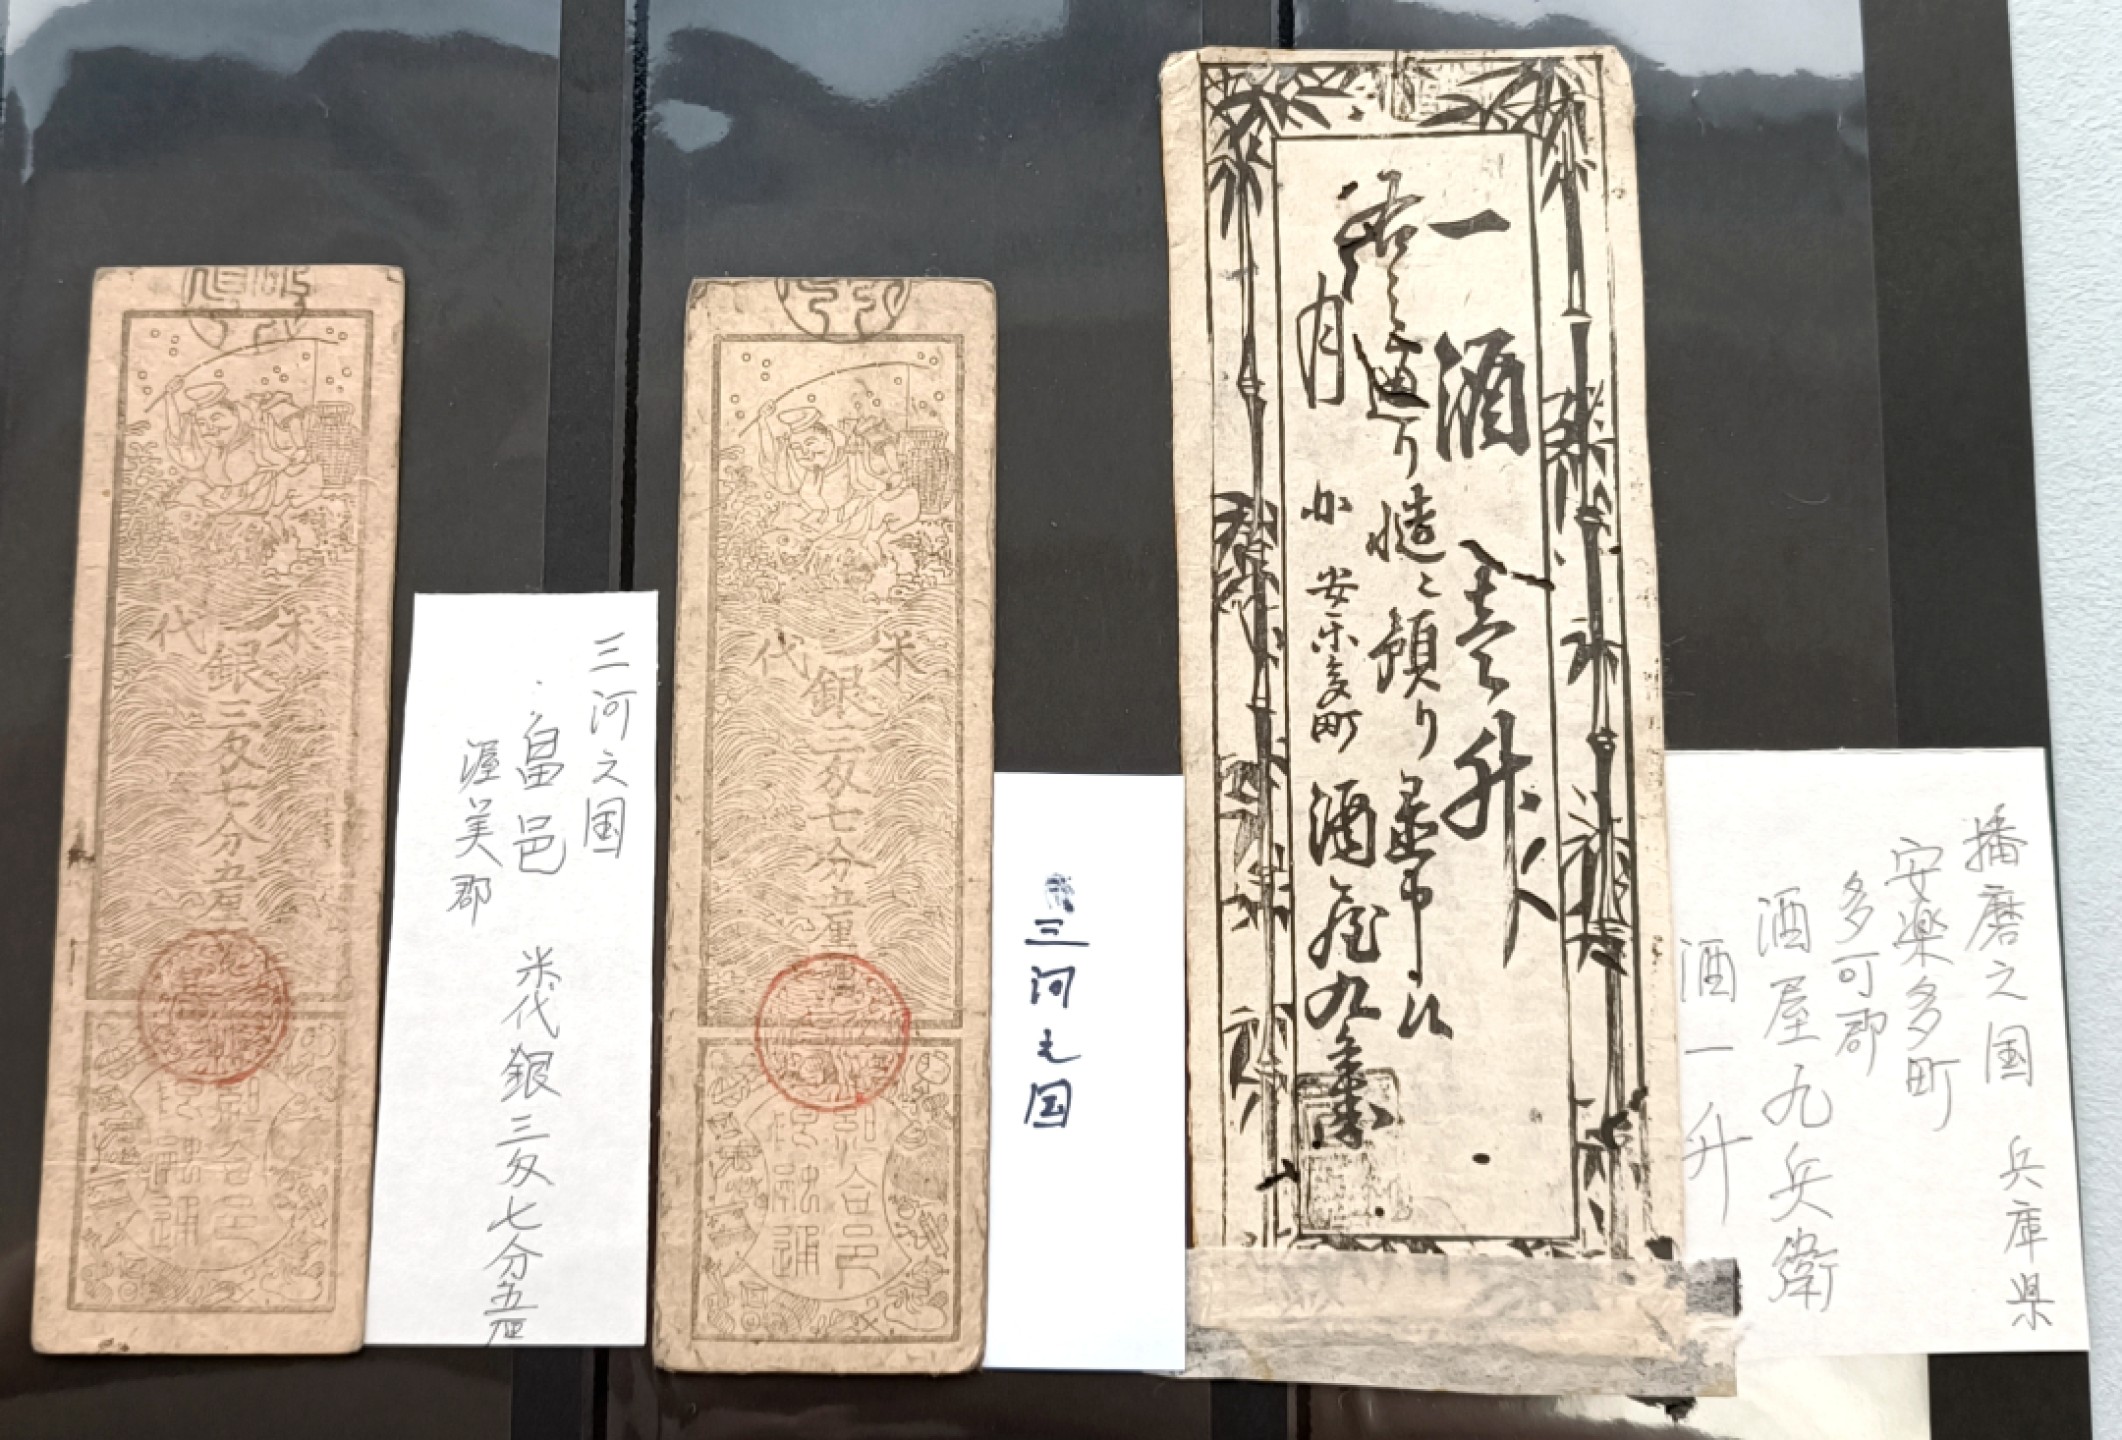 米
代
銀三匁七分五厘
三河之国
畠邑 米代銀三匁七分五厘
渥美郡
米
代
銀三匁七分五厘
三河之国
一酒壹升
右之通り慥ニ預り
月
安楽多町 酒屋九兵衛
播磨之国 兵庫県
安楽多町
多可郡
酒屋九兵衛
酒一升